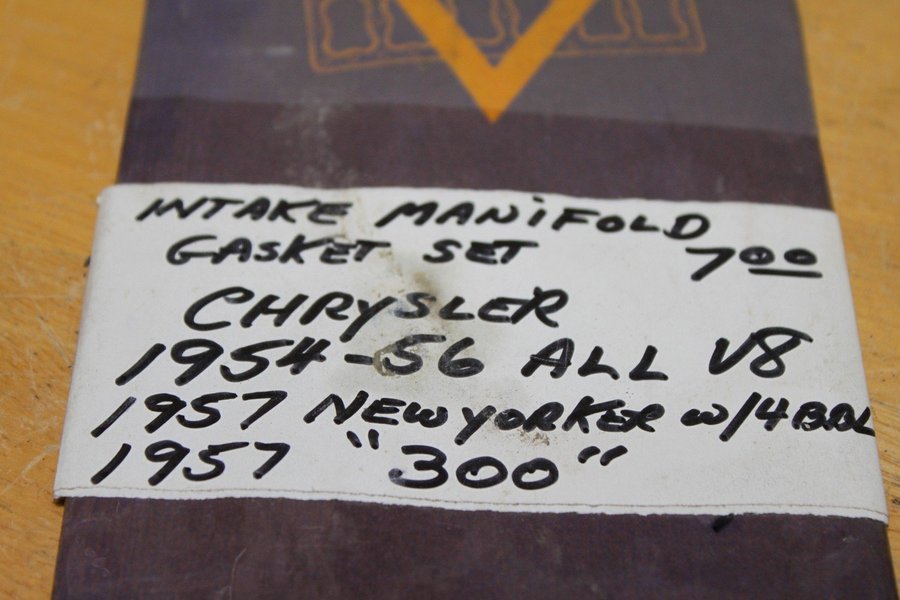 INTAKE MANIFOLD
GASKET SET 7.00
CHRYSLER
1954-56 ALL V8
1957 NEWYORKER w/4BBL
1957 "300"